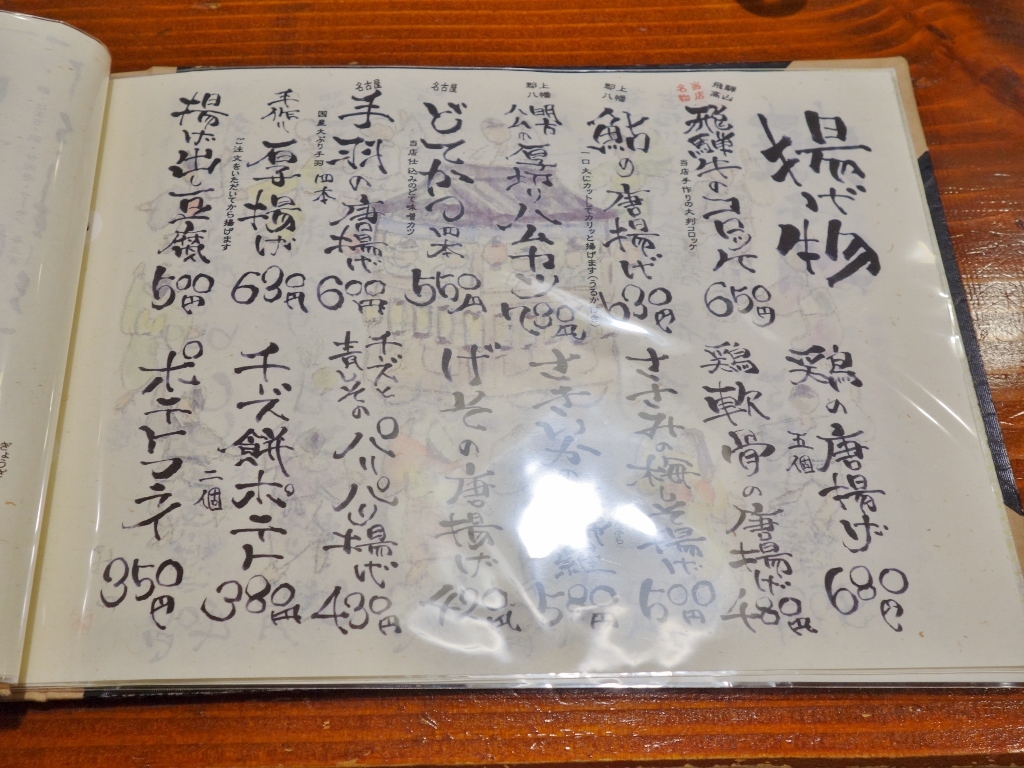 揚げ物
飛騨高山
当店名物
飛騨牛のコロッケ
当店手作りの大判コロッケ
650円
郡上八幡
鮎の唐揚げ
一口大にカットしてカリッと揚げます(うるか
630円
郡上八幡
明方ハムの厚切りハムカツ
730円
名古屋
どてかつ四本
当店仕込みのどて味噌カツ
550円
名古屋
手羽の唐揚げ
国産大ぶり手羽四本
600円
手作り厚揚げ
ご注文をいただいてから揚げます
630円
揚げ出し豆腐
500円
鶏の唐揚げ
五個
680円
鶏軟骨の唐揚げ
480円
ささみの梅しそ揚げ
500円
ささみの
580円
げその唐揚げ
420円
チーズと青しそのパリパリ揚げ
430円
チーズ餅ポテト
二個
380円
ポテトフライ
350円
ぎょうざ